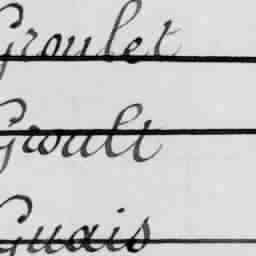 Groulet
Groult
Guais